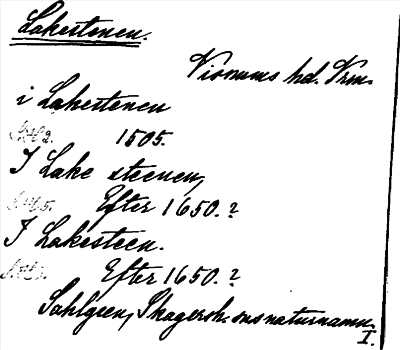 Lakestenen.
Visnums hd. Vrm.
i Lakestenen
1505.
I Lake steenen,
Efter 1650.?
I Lakesteen.
Efter 1650.?
Sahlgren, Skagersh.sns naturnamn.
I.